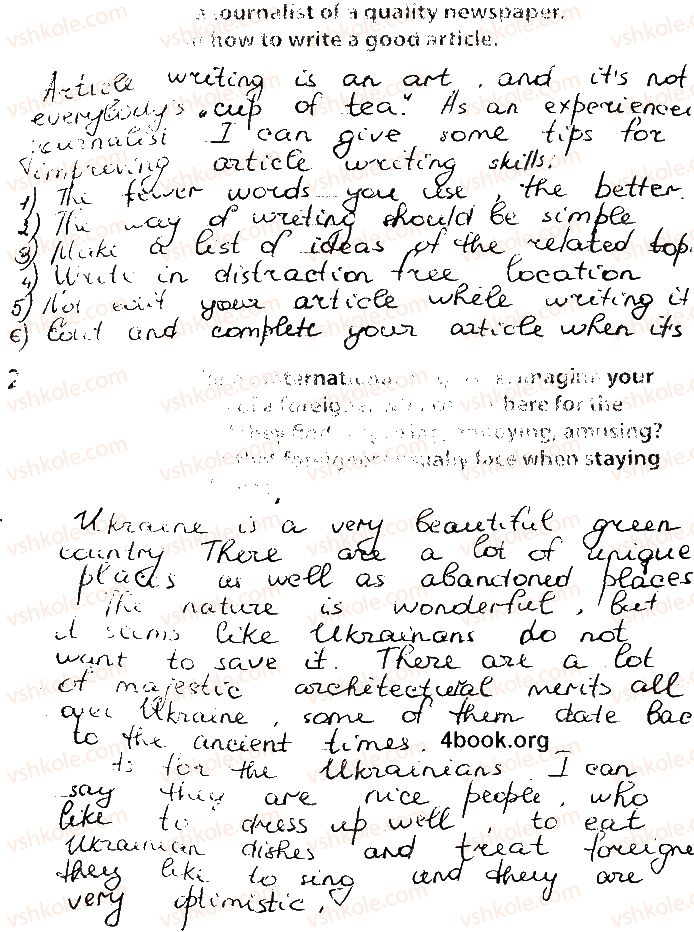 a journalist of a quality newspaper.
how to write a good article.
Article writing is an art, and it's not
everybody's „cup of tea". As an experienced
journalist I can give some tips for
improving article writing skills:
1) The fewer words you use, the better.
2) The way of writing should be simple
3) Make a list of ideas of the related top
4) Write in distraction free location
5) Not edit your article while writing it
6) Edit and complete your article when it's
2 international imagine your
of a foreign here for the
they find annoying, amusing?
that foreigners usually face when staying
Ukraine is a very beautiful green
country There are a lot of unique
places as well as abandoned places
The nature is wonderful, but
it seems like Ukrainans do not
want to save it. There are a lot
of majestic architectural merits all
over Ukraine, some of them date bac
to the ancient times. 4book.org
As for the Ukrainians I can
say they are nice people, who
like to dress up well, to eat
Ukrainian dishes and treat foreigne
they like to sing and they are
very optimistic.